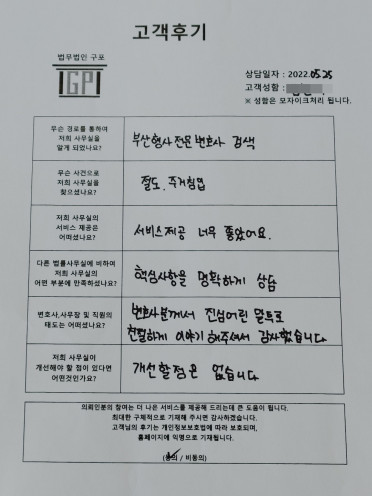 고객후기
법무법인 구포
GP
상담일자 : 2022.05.25
고객성함 :
※ 성함은 모자이크처리 됩니다.
무슨 경로를 통하여
저희 사무실을
알게 되었나요?
부산형사전문변호사 검색
무슨 사건으로
저희 사무실을
찾으셨나요?
절도, 주거침입
저희 사무실의
서비스 제공은
어떠셨나요?
서비스제공 너무 좋았어요.
다른 법률사무실에 비하여
저희 사무실의
어떤 부분에 만족하셨나요?
핵심사항을 명확하게 상담
변호사,사무장 및 직원의
태도는 어떠셨나요?
변호사분께서 진심어린 말투로
친절하게 이야기 해주셔서 감사했습니다
저희 사무실이
개선해야 할 점이 있다면
어떤것인가요?
개선할점은 없습니다
의뢰인분의 참여는 더 나은 서비스를 제공해 드리는데 큰 도움이 됩니다.
최대한 구체적으로 기재해 주시면 감사하겠습니다.
고객님의 후기는 개인정보보호법에 따라 보호되며,
홈페이지에 익명으로 기재됩니다.
(동의 / 비동의)